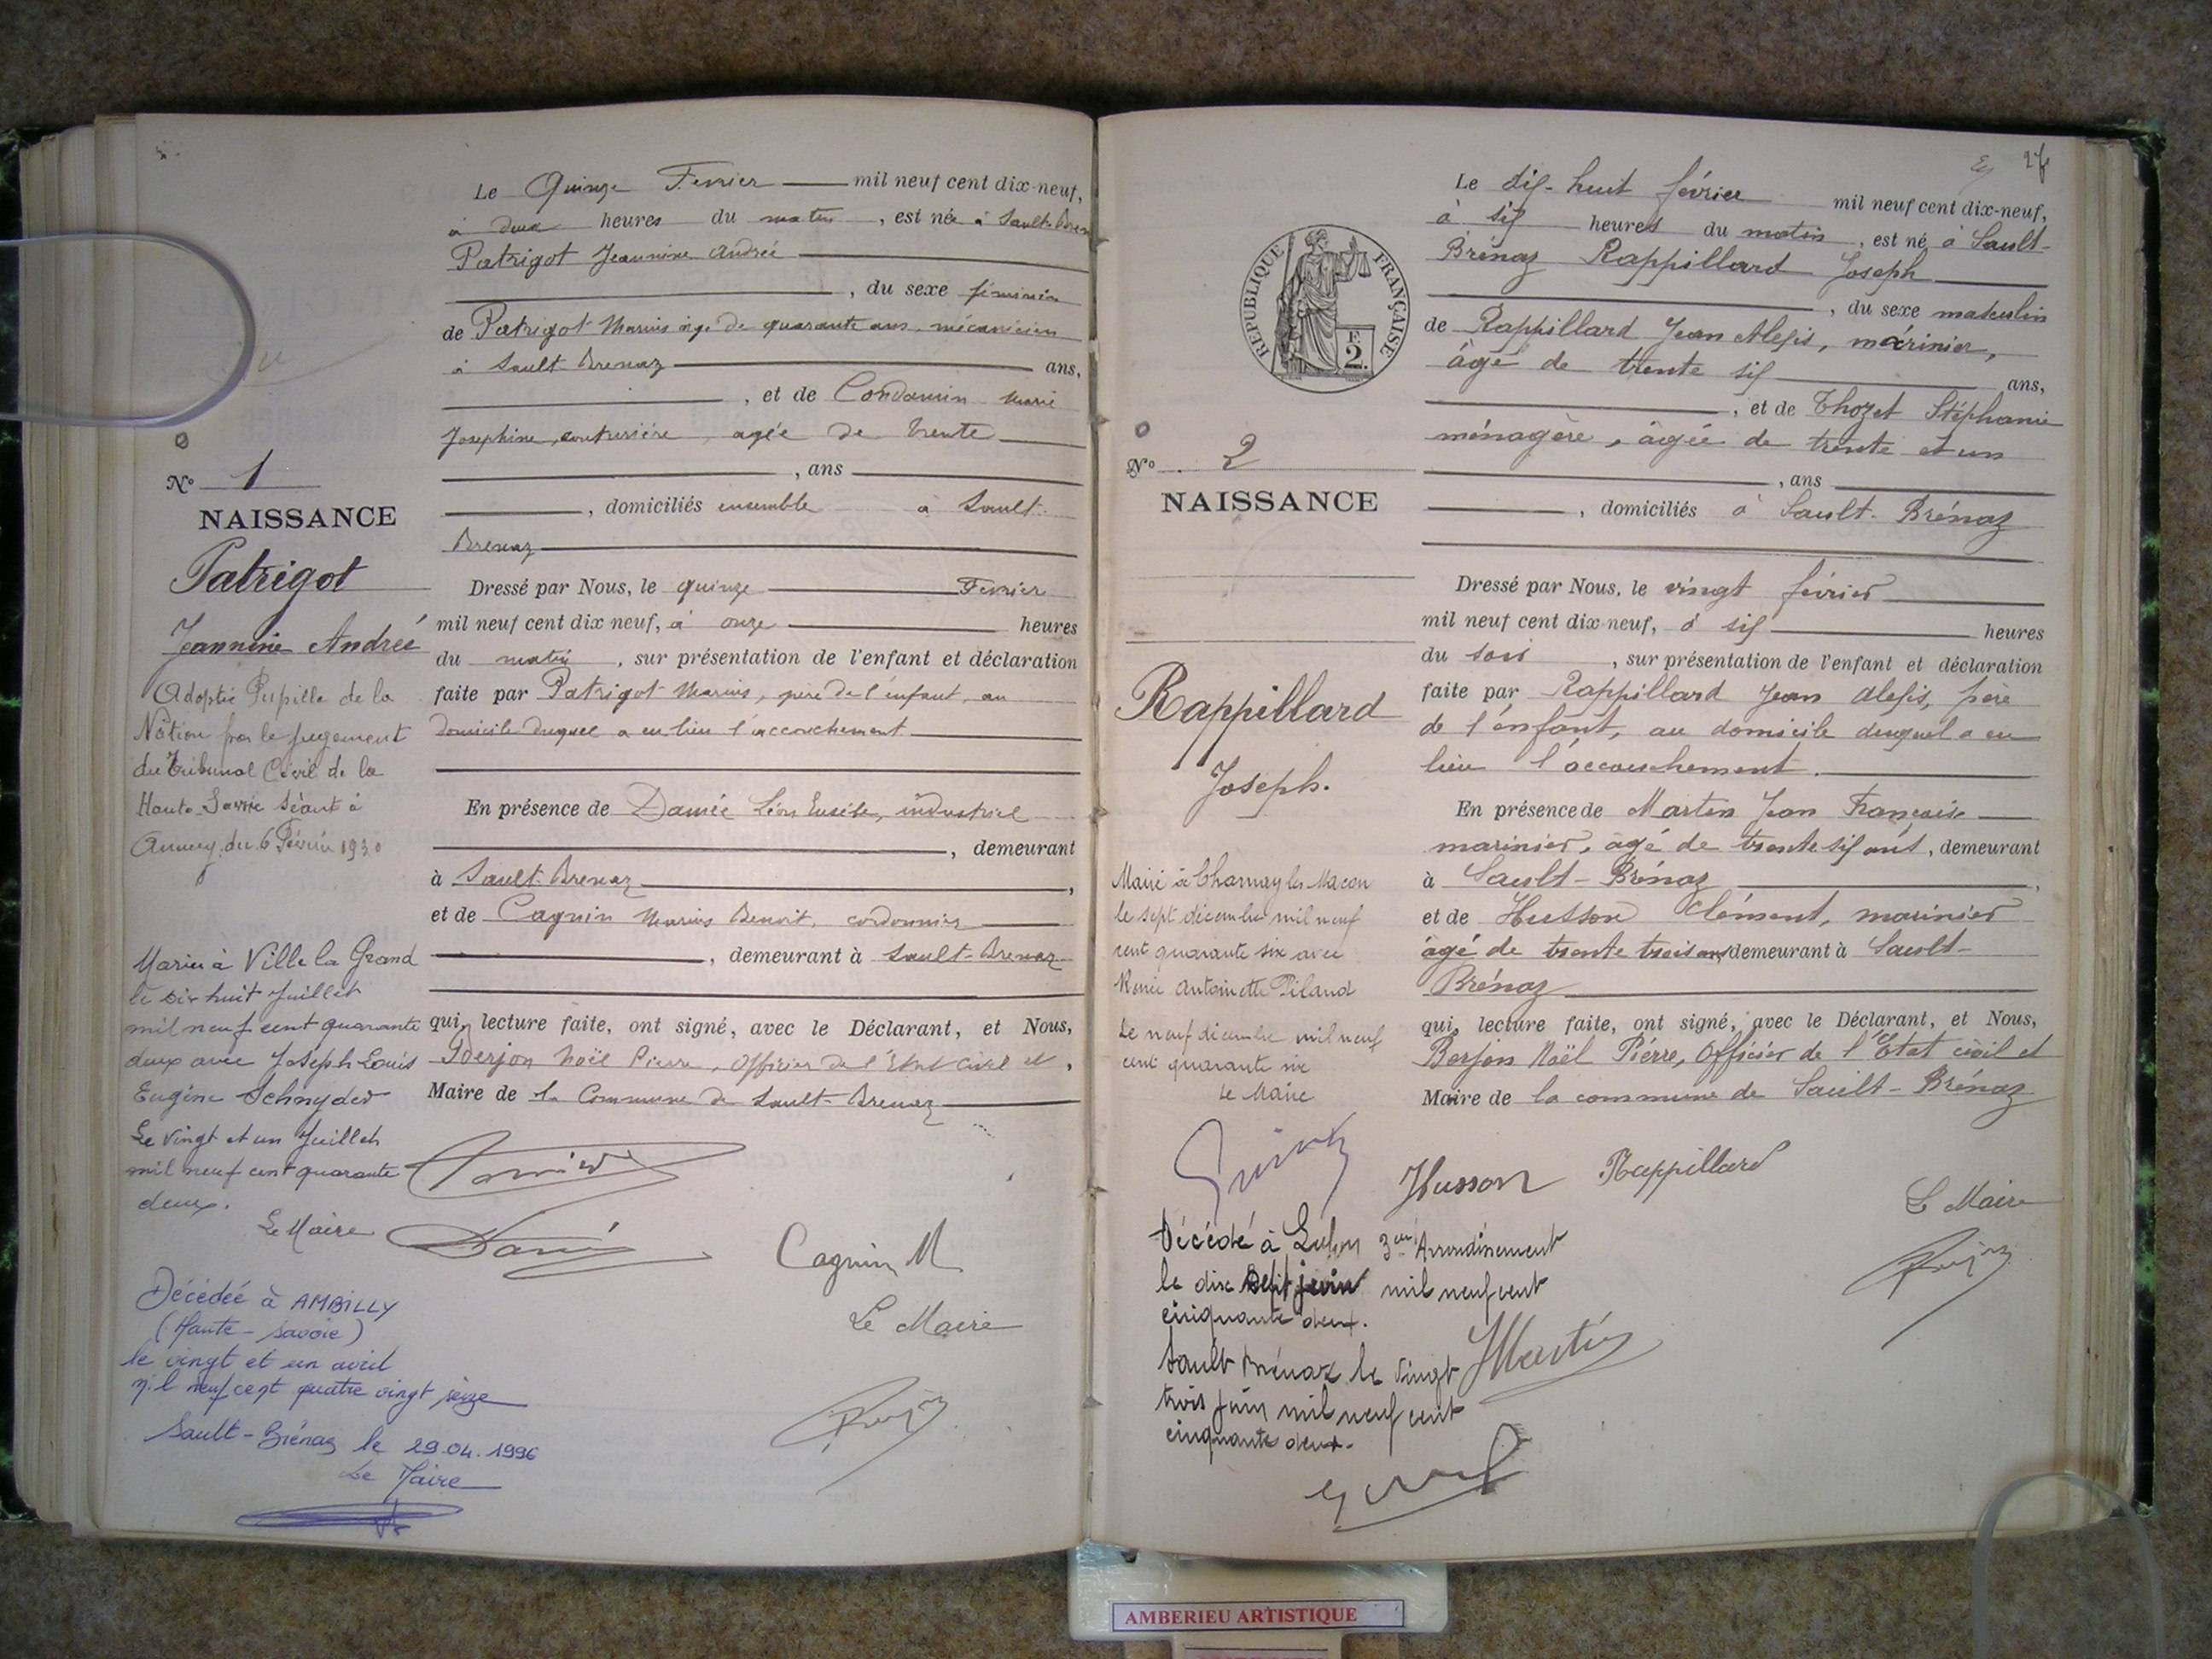 Le Quinze Fevrier mil neuf cent dix-neuf,
à deux heures du matin, est née à Sault-Bren
Patrigot Jeannine Andrée
, du sexe féminin
de Patrigot Marius âgé de quarante ans, mécanicien
à Sault-Brenaz ans,
, et de Condamin Marie
Josephine, couturière, agée de trente
, ans
, domiciliés ensemble à Sault-
Brenaz
Dressé par Nous, le quinze Fevrier
mil neuf cent dix neuf, à onze heures
du matin, sur présentation de l'enfant et déclaration
faite par Patrigot Marius, père de l'enfant, au
domicile duquel a eu lieu l'accouchement
En présence de Damié Léon Eusèbe, industriel
, demeurant
à Sault-Brenaz,
et de Cagnin Marius Benoit, cordonnier
, demeurant à Sault-Brenaz
qui, lecture faite, ont signé, avec le Déclarant, et Nous,
Berjon Noël Pierre, Officier de l'État Civil et,
Maire de la Commune de Sault-Brenaz
Cagnin M
Le Maire
No 1
NAISSANCE
Patrigot
Jeannine Andrée
Adoptée Pupille de la
Nation par le jugement
du Tribunal Civil de la
Haute-Savoie séant à
Annecy, du 6 Février 1930
Mariée à Ville la Grand
le dix huit Juillet
mil neuf cent quarante
deux avec Joseph Louis
Eugène Schnyder
Le vingt et un Juillet
mil neuf cent quarante
deux.
Le Maire
Décédée à AMBILLY
(Haute-Savoie)
le vingt et un avril
mil neuf cent quatre vingt seize
Sault-Brénaz le 29.04.1996
Le Maire
27
Le dix-huit février mil neuf cent dix-neuf,
à six heures du matin, est né à Sault-
Brénaz Rappillard Joseph
, du sexe masculin
de Rappillard Jean Alexis, marinier,
âgé de trente six ans,
, et de Thozet Stéphanie
ménagère, âgée de trente et un
, ans
, domiciliés à Sault-Brénaz
Dressé par Nous, le vingt février
mil neuf cent dix-neuf, à six heures
du soir, sur présentation de l'enfant et déclaration
faite par Rappillard Jean Alexis, père
de l'enfant, au domicile duquel a eu
lieu l'accouchement.
En présence de Martin Jean François
marinier, âgé de trente six ans, demeurant
à Sault-Brénaz,
et de Husson Clément, marinier
âgé de trente trois ans demeurant à Sault-
Brénaz
qui, lecture faite, ont signé, avec le Déclarant, et Nous,
Berjon Noël Pierre, Officier de l'Etat civil et
Maire de la commune de Sault-Brénaz
Husson Rappillard
Le Maire
JMartin
RÉPUBLIQUE FRANÇAISE
E.
2.
No 2
NAISSANCE
Rappillard
Joseph.
Marié à Charnay les Macon
le sept décembre mil neuf
cent quarante six avec
Renée Antoinette Pilaud
Le neuf décembre mil neuf
cent quarante six
Le Maire
Décédé à Lyon 3eme Arrondissement
le dix sept juin mil neuf cent
cinquante deux.
Sault Brénaz le vingt
trois juin mil neuf cent
cinquante deux.
AMBERIEU ARTISTIQUE